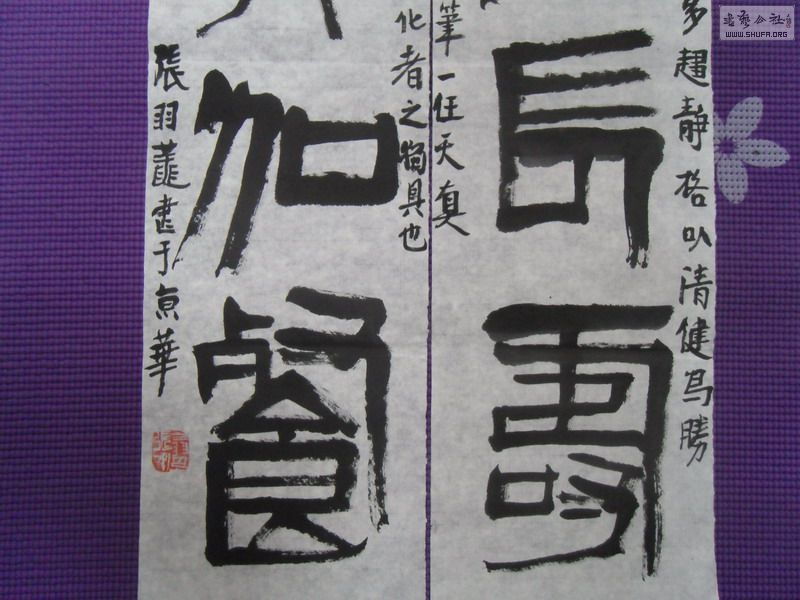 多超靜格以清健為勝
長壽
筆一任天真
化者之獨具也
加餐
張羽翥書于京華
書艺公社
WWW.SHUFA.ORG